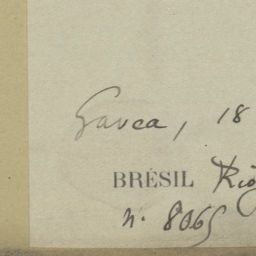 Gavea, 18
BRÉSIL Rio
n. 8065